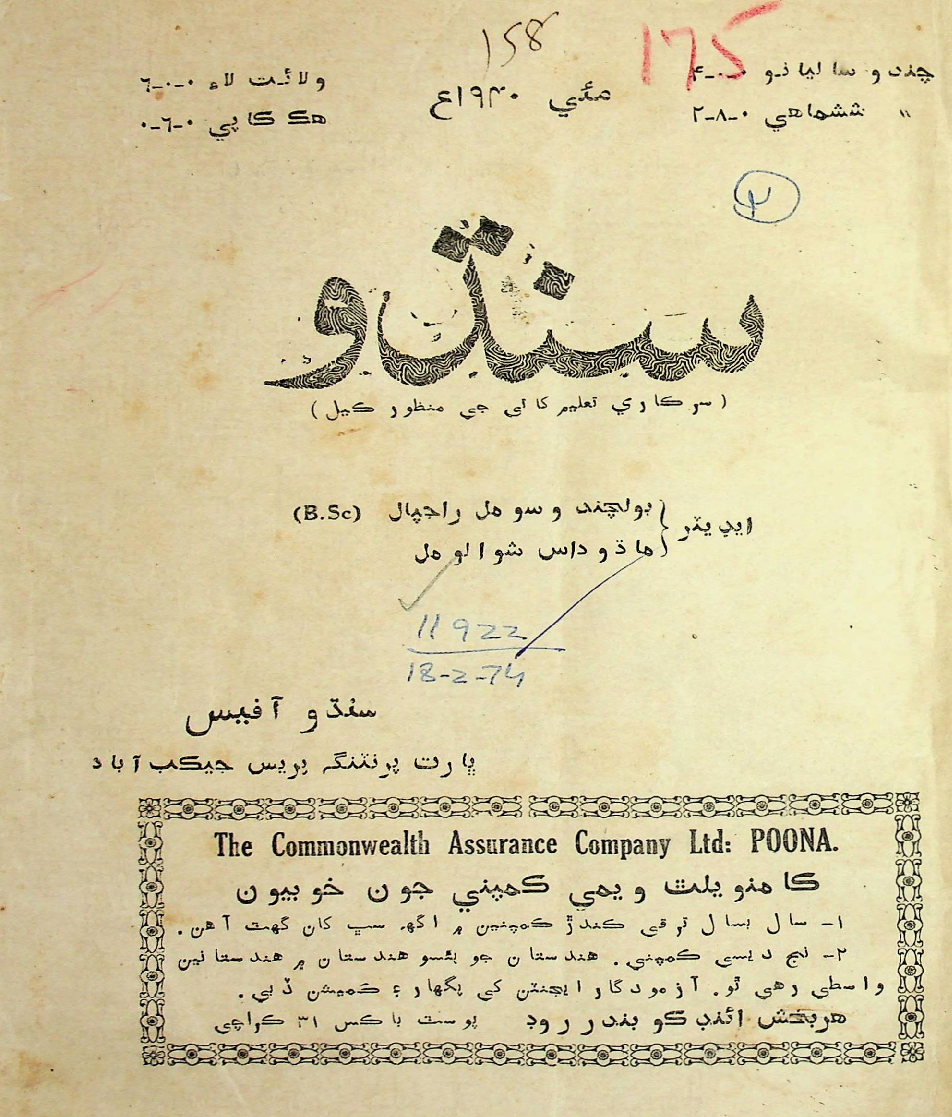 158
175
چندو ساليانو ٤-٠-٠
مئي ١٩٤٠ع
ولائت لاءِ ٠-٠-٦
" ششماهي ٠-٨-٢
هڪ ڪاپي ٠-٦-٠
٢
سنڌو
( سرڪاري تعليم کاتي جي منظور ڪيل )
ايڊيٽر
بولچند وسومل راجپال (B.Sc)
ماڌوداس شوالومل
11922
18-2-74
سنڌو آفيس
ڀارت پرنٽنگ پريس جيڪب آباد
The Commonwealth Assurance Company Ltd: POONA.
ڪامنويلٿ ويمي ڪمپني جون خوبيون
١- سال بسال ترقي ڪندڙ ڪمپنين ۾ اگهه سڀ کان گهٽ آهن.
٢- نج ديسي ڪمپني. هندستان جو پئسو هندستان ۾ هندستانين
واسطي رهي ٿو. آزمودگار ايجنٽن کي پگهار ۽ ڪميشن ڏبي.
هربخش ائنڊ ڪو بندر روڊ پوسٽ باڪس ٣١ ڪراچي